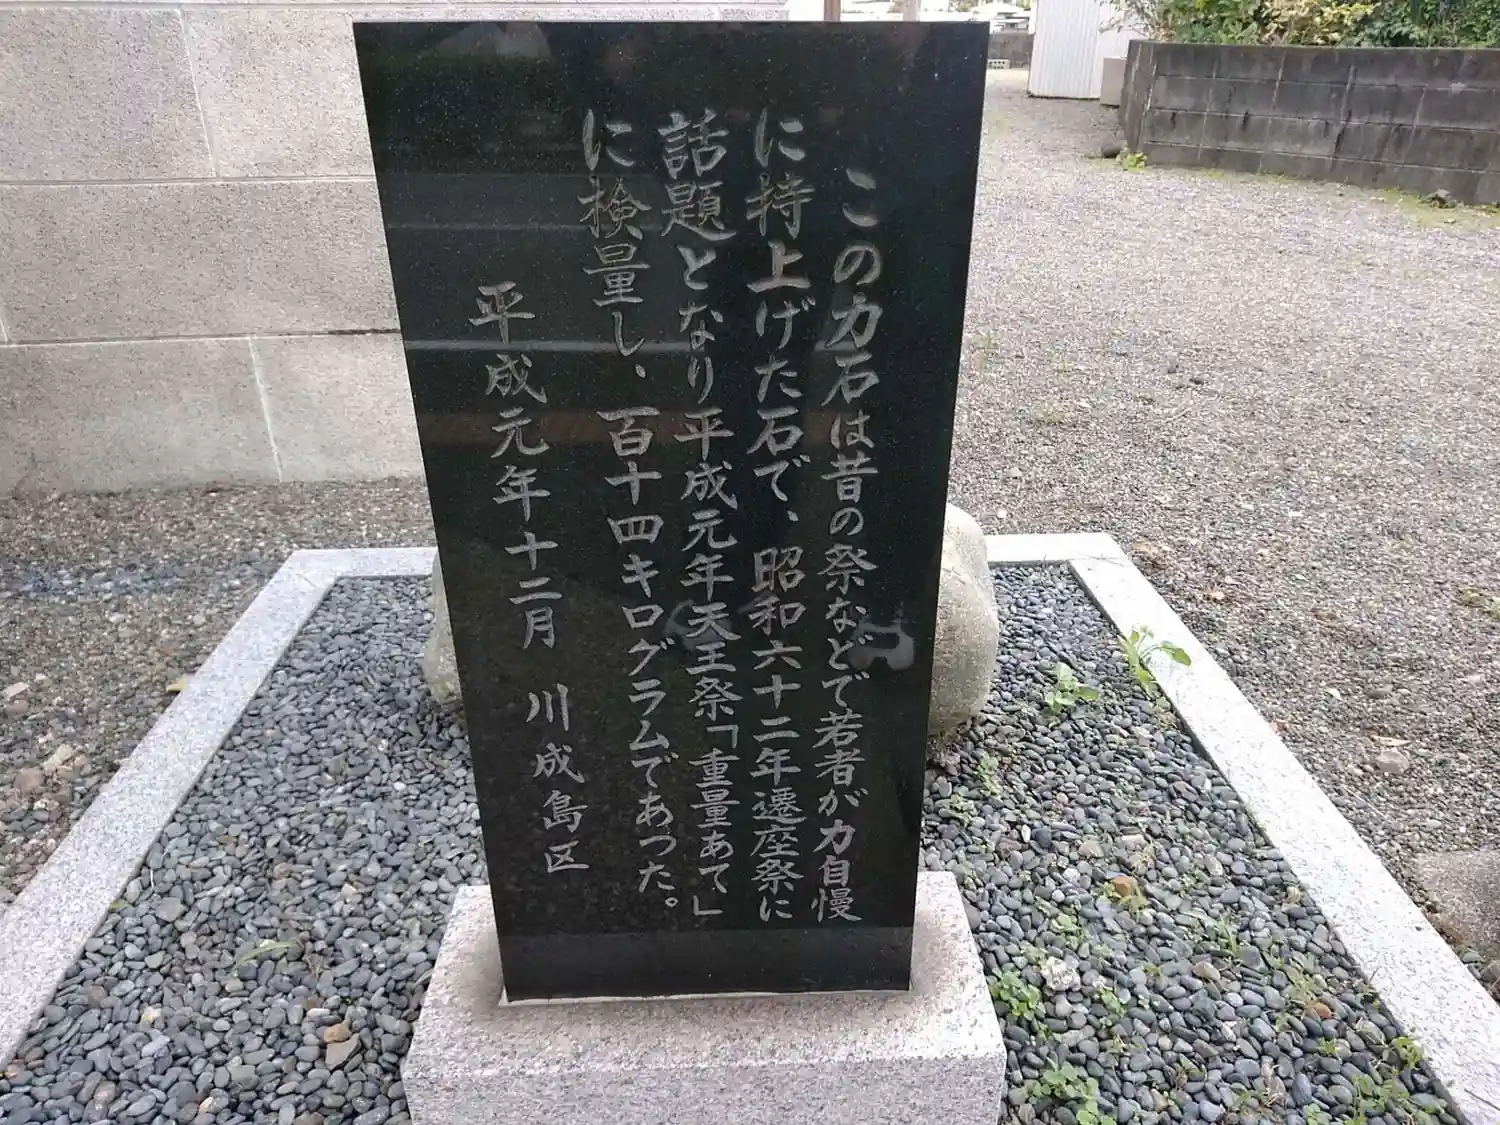 この力石は昔の祭などで若者が力自慢
に持上げた石で、昭和六十二年遷座祭に
話題となり平成元年天王祭「重量あて」
に検量し、百十四キログラムであった。
平成元年十二月 川成島区